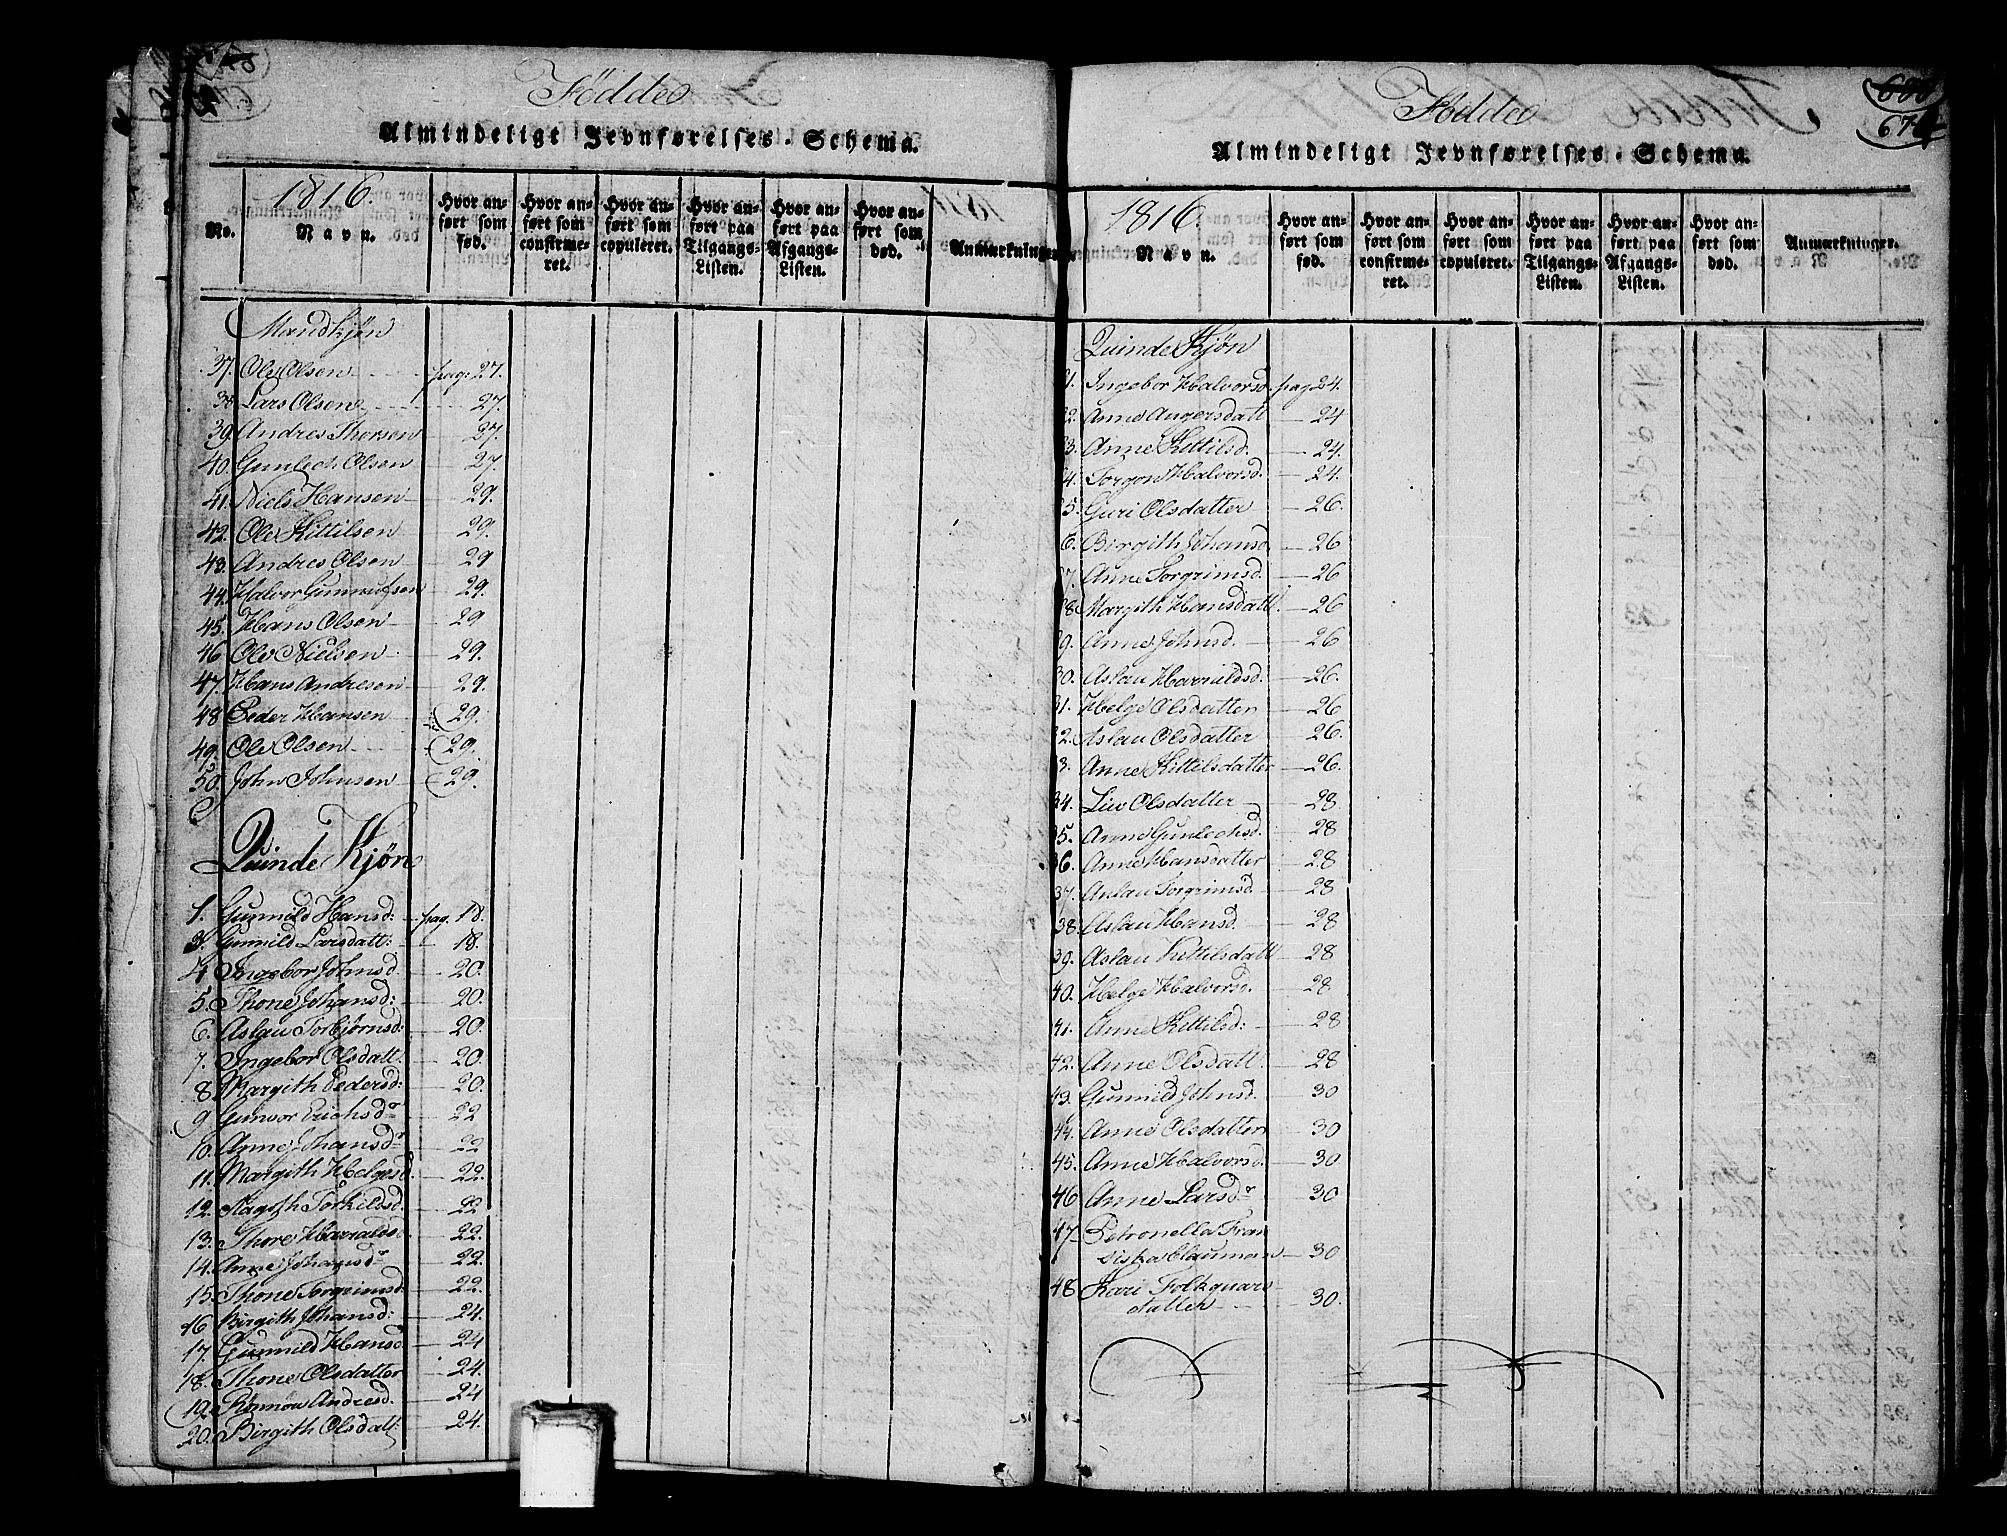 Födde
Almindeligt Jevnførelses-Schema.
1816.
No.
Navn.
Hvor anført som fød.
Hvor anført som confirmeret.
Hvor anført som copuleret.
Hvor anført paa Tilgangs-Listen.
Hvor anført paa Afgangs-Listen.
Hvor anført som død.
Anmærkninger.
Mandkjøn
37. Ole Olsen pag: 27.
38 Lars Olsen 27.
39. Andres Thorsen 27.
40. Gunlech Olsen 27.
41. Niels Hansen 29.
42. Ole Kittilsen 29.
43. Andres Olsen 29
44. Halvor Gunnufsen 29.
45. Hans Olsen 29
46 Ole Nielsen 29.
47. Hans Andresen 29.
48 Peder Hansen 29.
49. Ole Olsen 29.
50. John Johnsen 29.
Quinde Kjøn
1. Gunnild Hansd: pag. 18.
3. Gunnild Larsdatt: 18.
4 Ingebor Johnsd 20.
5. Thone Johansd: 20.
6. Aslau Torbjörnsd: 20.
7. Ingebor Olsdatt. 20.
8. Margith Pedersd: 20.
9 Gunvor Erichsdr 22
10. Anne Johansdr 22
11. Margith Helgesd. 22.
12. Aagith Torkildsd. 22
13. Thore Harraldsd. 22.
14. Anne Johansdr 22.
15. Thone Torgrimsd. 22.
16 Birgith Johansd: 24.
17. Gunnild Hansd 24
18. Thone Olsdatter 24.
19. Rannow Andresd. 24
20. Birgith Olsdatt: 24.
Födde
674
Almindeligt Jevnførelses-Schema.
1816.
Navn.
Hvor anført som fød.
Hvor anført som confirmeret.
Hvor anført som copuleret.
Hvor anført paa Tilgangs-Listen.
Hvor anført paa Afgangs-Listen.
Hvor anført som død.
Anmærkninger.
Quinde Kjøn
1. Ingebor Halvorsd. pag 24.
2. Anne Aagersdatt 24
3. Anne Kittilsd. 24.
4. Torgon Halvorsd. 24.
5. Guri Olsdatter 26.
6. Birgith Johansd. 26
7. Anne Torgrimsd. 26
8 Margith Hansdatt. 26
9. Anne Johnsd. 26
30. Aslau Harraldsd. 26.
31. Helge Olsdatter 26
32. Aslau Olsdatter 26.
3. Anne Kittilsdatter 26.
34. Liv Olsdatter 28
35. Anne Gunlechsd. 28
36. Anne Hansdatter 28
37. Aslau Torgrimsd. 28
38. Aslau Hansd. 28
39. Aslau Kittilsdatt 28
40. Helge Halvorsd. 28
41. Anne Kittilsd: 28
42. Anne Olsdatt. 28
43. Gunnild Johnsd. 30
44. Anne Olsdatter 30
45. Anne Halvorsd. 30
46 Anne Larsdr 30
47 Petronella Fran
ciska Clausman 30
48 Kari Folkquars
datter 30.